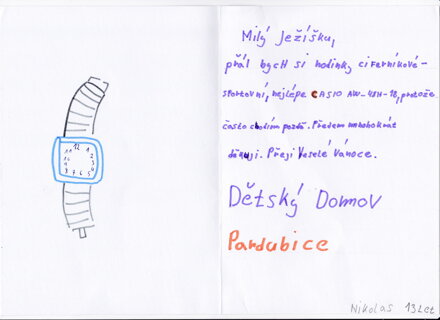 12
11 1
10 2
9 3
8 4
7 6 5
Milý Ježíšku,
přál bycH si hodinky ciferníkové-
sportovní, nejlépe CASIO AW-48H-1B, protože
často chodím pozdě. Předem mnohokrát
děkuji. Přeji Veselé Vánoce.
Dětský Domov
Pardubice
Nikolas 13 Let